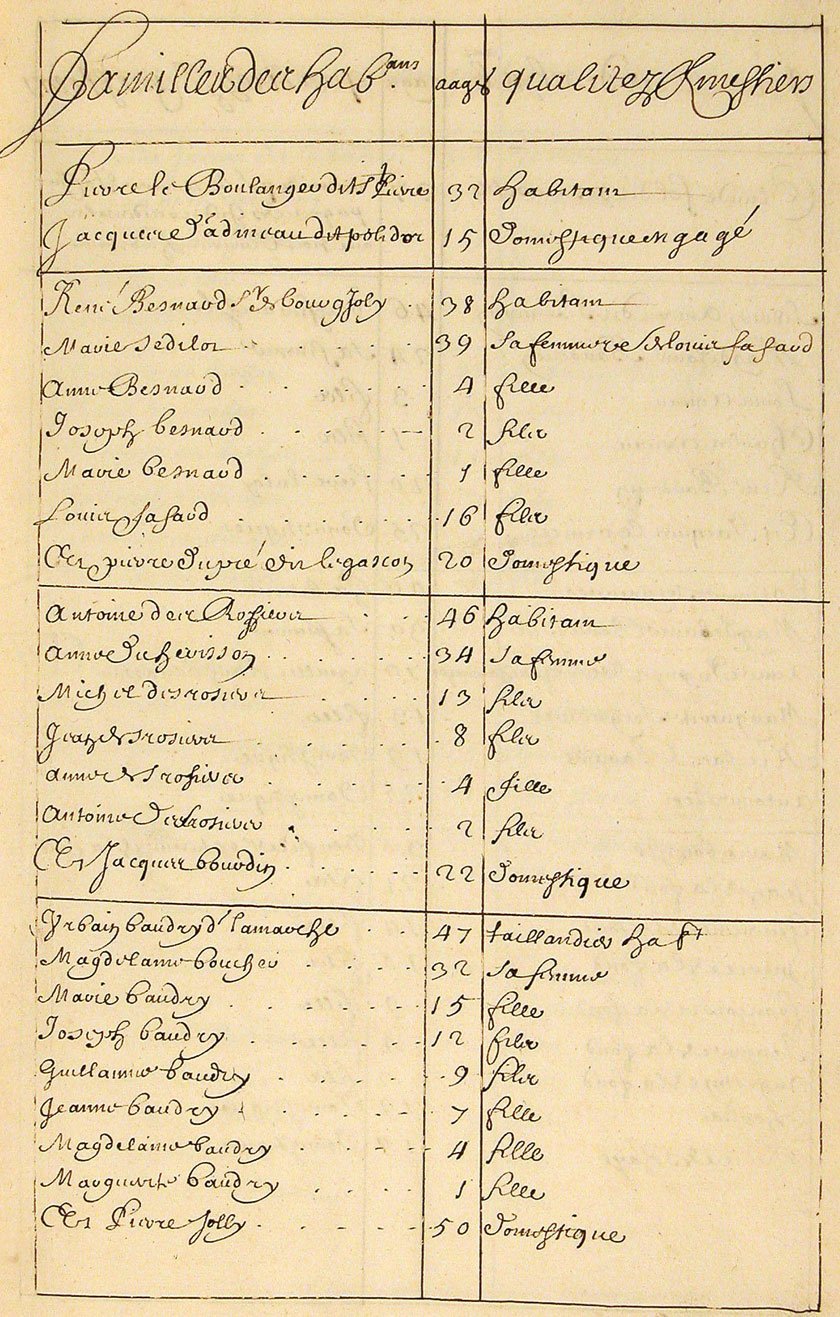 Familles des hab.ans aages qualitez & mestiers
Pierre le Boulanger dit St Pierre 32 habitant
Jacques Dadineau dit polidor 15 domestique engagé
René Besnard Sr de bourgJoly 38 habitant
Marie Sedilot 39 sa femme ve de louis fafard
Anne Besnard 4 fille
Joseph besnard 2 fils
Marie besnard 1 fille
Louis fafard 16 fils
Et pierre dupré dit le gascon 20 domestique
Antoine des Rossiers 46 habitant
Anne du herisson 34 sa femme
Michel desrosiers 13 fils
Jean desrosiers 8 fils
anne desrosiers 4 fille
Antoine desrosiers 2 fils
Et Jacques bourdin 22 domestique
Urbain baudry d. lamarche 47 taillandier habt
Magdelaine boucher 32 sa femme
Marie baudry 15 fille
Joseph baudry 12 fils
Guillaume baudry 9 fils
Jeanne baudry 7 fille
Magdelaine baudry 4 fille
Marguerite baudry 1 fille
Et Pierre Jolly 50 domestique